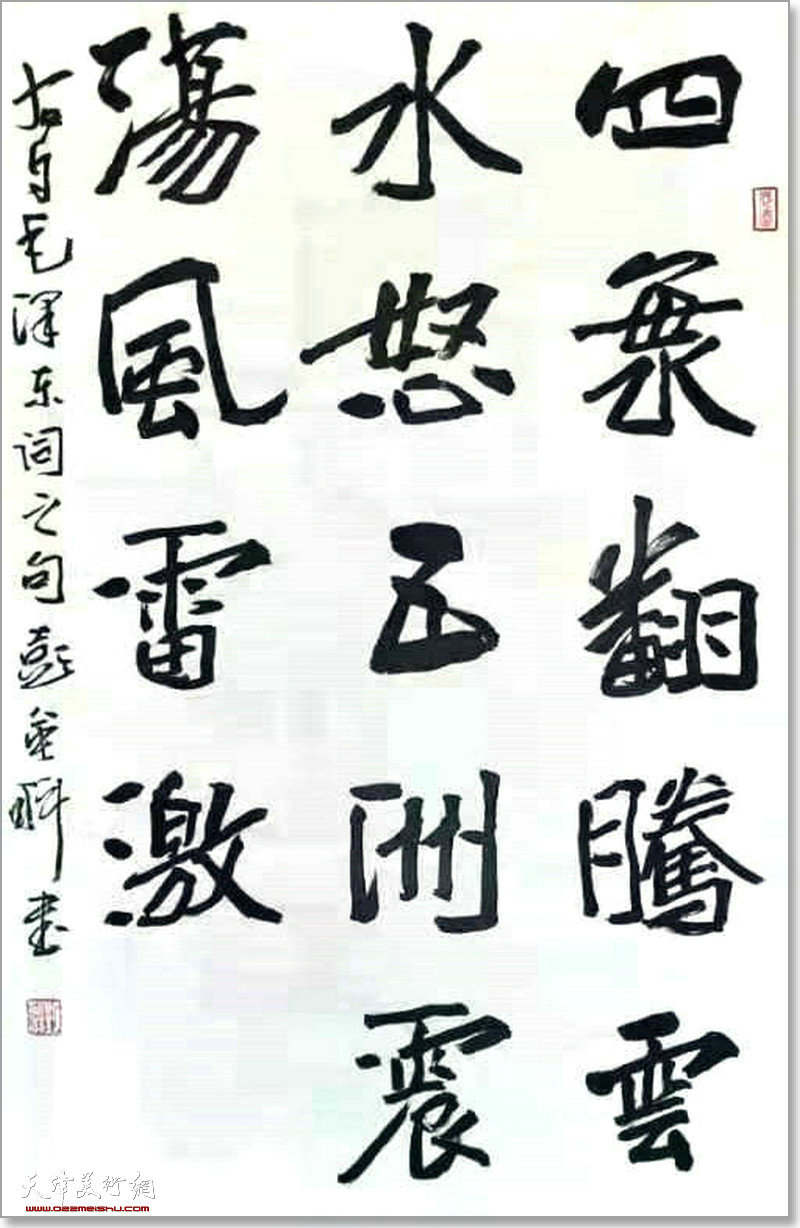 四海翻騰雲
水怒五洲震
蕩風雷激
毛泽东词之句彭英科书
天津美術網
www.022meishu.com